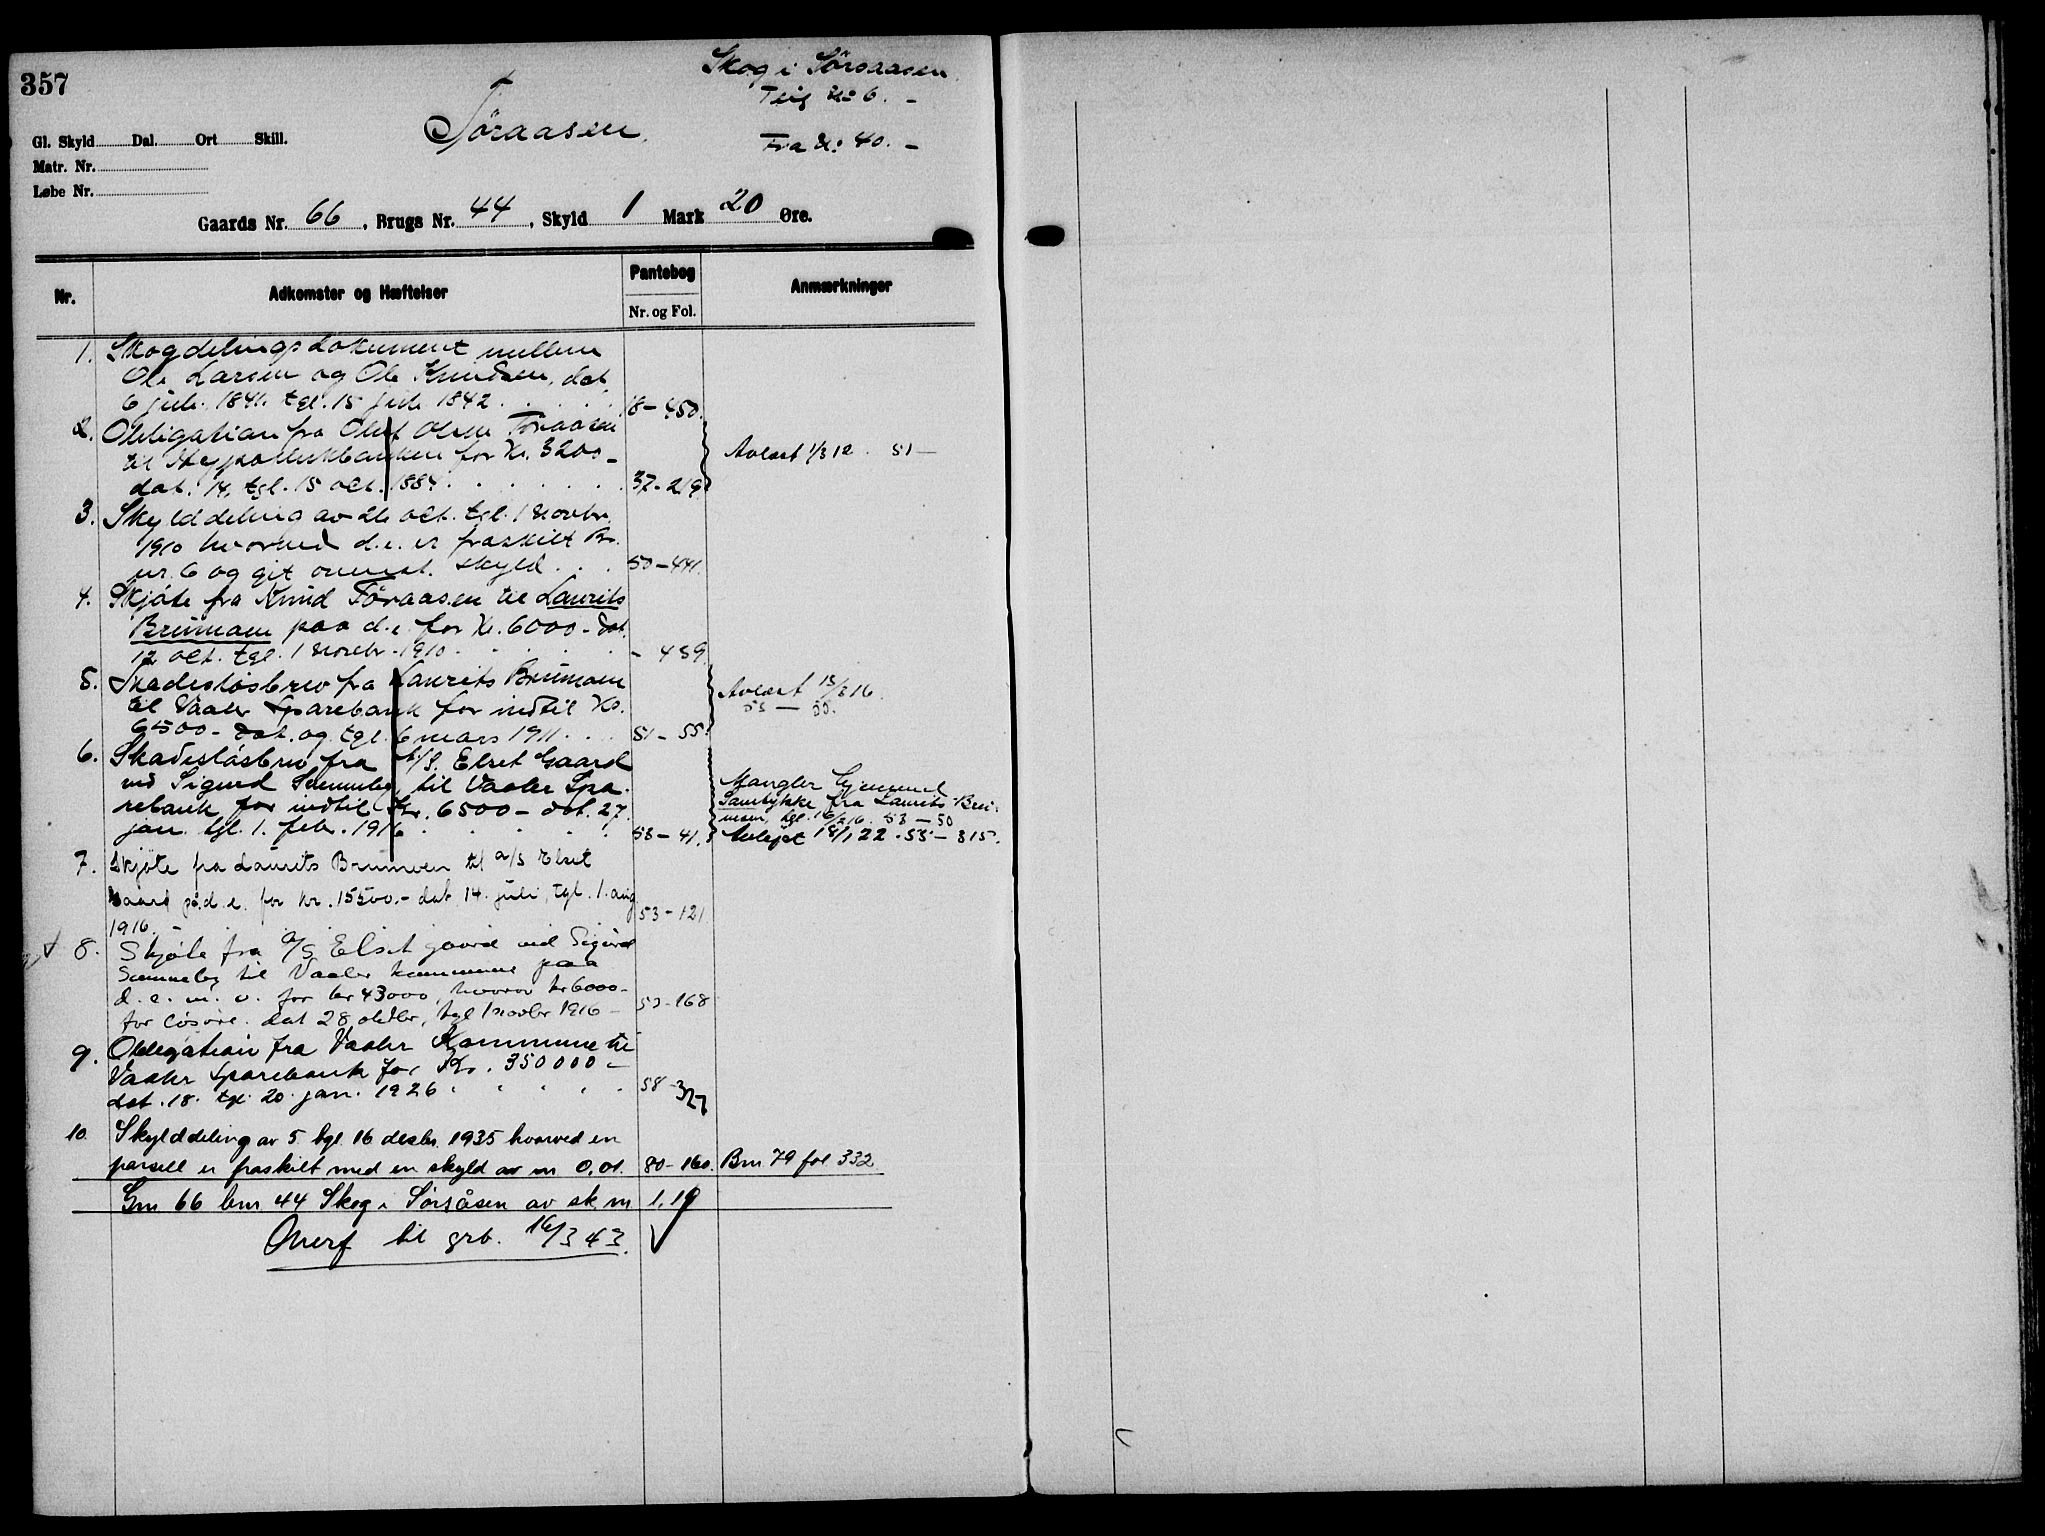 357
Skog i Sørsaasen
Teig No 6. -
Føraasen.
Fra No 40. -
Gl. Skyld Dal. Ort Skill.
Matr. Nr.
Løbe Nr.
Gaards Nr. 66, Brugs Nr. 44, Skyld 1 Mark 20 Øre.
Nr. Adkomster og Hæftelser Pantebog Nr. og Fol. Anmærkninger
1. Skogdelingsdokument mellem
Ole Larsen og Ole Knudsen, dat.
6 juli 1841. tgl. 15 juli 1842 . . . 8-450.
2. Obligation fra Oluf Olsen Føraasen
til Hypothekbanken for Kr. 3200- Avlæst 1/3 12. 51-
dat. 14, tgl. 15 oct. 1887 . . . 37-219.
3. Skylddeling av 26 oct. tgl. 1 novbr.
1910 hvorved d.e. er fraskilt Br.
nr. 6 og git ovennt. skyld . . . 50-441.
4. Skjøte fra Knud Føraasen til Laurits
Brumoen paa d.e. for Kr. 6000- dat.
12 oct. tgl. 1 novebr. 1910 . . . - 489.
5. Skadesløsbrev fra Laurits Brumoen Avlæst 15/3 16.
til Vaaler Sparebank for indtil Kr. 53 - 50.
6500- dat. og tgl. 6 mars 1911 . . . 51-55.
6. Skadesløsbrev fra A/S. Elset Gaard
ved Sigurd til Vaaler Spa- Mangler hjemmel
rebank for indtil Kr. 6500- dat. 27. Samtykke fra Laurits Bru-
jan. tgl. 1. febr. 1916 . . . 53-41. moen, tgl. 16/2 16. 53-50
Avlyst 18/1 22. 55-315.
7. Skjøte fra Laurits Brumoen til a/s Elset
gaard på d.e. for kr. 15500.- dat 14. juli, tgl. 1. aug
1916. - . . . 53-121.
8. Skjøte fra A/S Elset gaard ved Sigurd
til Vaaler kommune paa
d.e. m.v. for kr 43000, hvorav kr 6000-
for løsøre. dat 28 oktbr, tgl 1 novbr 1916- 53-168
9. Obligation fra Vaaler Kommune til
Vaaler Sparebank for Kr. 350000-
dat. 18. tgl. 20. jan. 1926 . . . 58-327
10. Skylddeling av 5. tgl. 16 desbr. 1935 hvorved en
parsell er fraskilt med en skyld av m 0,01. 80-160. Bnr 79 fol 332
Gnr 66 bnr 44 Skog i Sørsåsen av sk m 1,19
Overf til grb. 16/3 43.